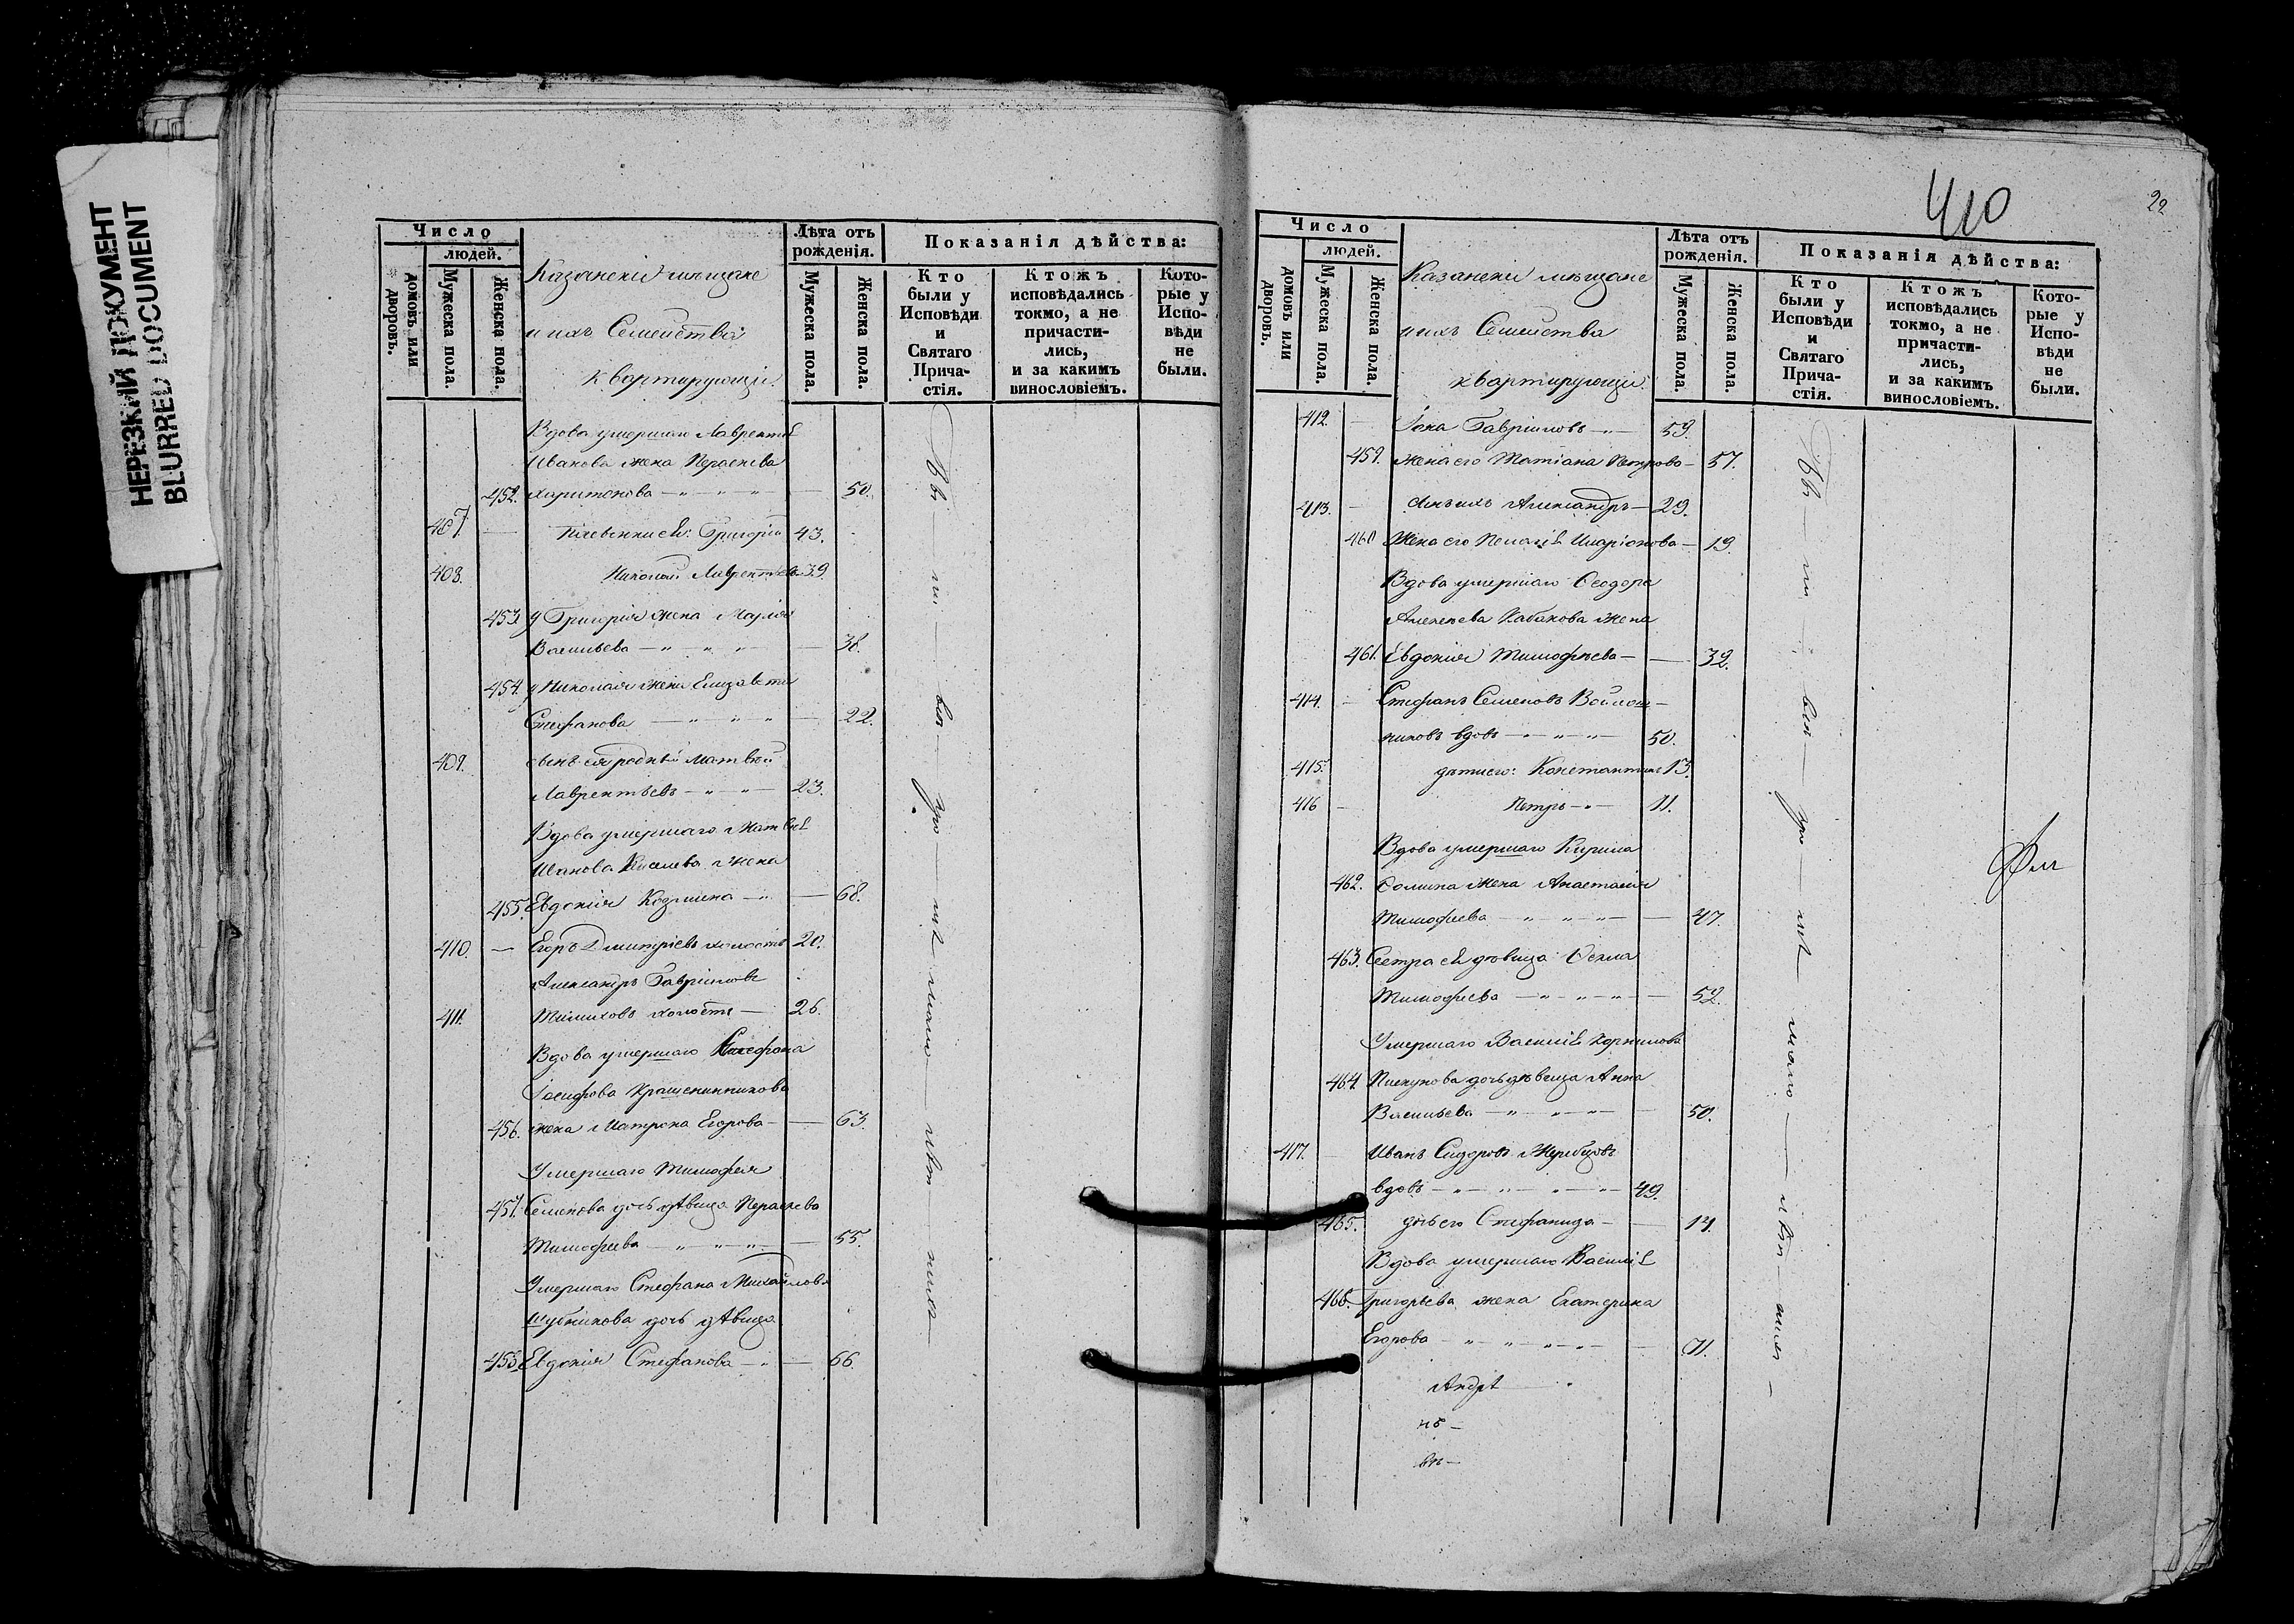 НЕРЕЗКИЙ ДОКУМЕНТ
BLURRED DOCUMENT
Число
людей.
домовъ или дворовъ.
Мужеска пола.
Женска пола.
Казанскіи мѣщане
и ихъ Семейства
квартирующіи.
Лѣта отъ рожденія.
Мужеска пола.
Женска пола.
Показанія дѣйства:
Кто были у Исповѣди и Святаго Прича-стія.
Ктожъ исповѣдались токмо, а не причасти-лись, и за какимъ винословіемъ.
Кото-рые у Испо-вѣди не были.
Вдова умершаго Лаврентія
Иванова жена Параскева
452. Харитонова — " — " — " — 50.
407. — Григорій 43.
408. Николай Лаврентьевы 39.
453. у Григорія жена Марія
Васильева — " " " — 38.
454. у Николая жена Елизавета
Стефанова — " " " — 22.
409. сынъ ея родный Матвѣй
Лаврентьевъ — " — " — 23.
Вдова умершаго Матвѣя
Иванова Киселева жена
455. Евдокія Козмина — " — 68.
410. — Егоръ Дмитріевъ холостъ 20.
Александръ Гавриловъ
411. холостъ — 26.
Вдова умершаго
Іосифова Крашенинникова
456. жена Матрона Егорова — 63.
Умершаго Тимофея
457. Семенова дочь дѣвица Параскева
Тимофеева — " — " — " — 55.
Умершаго Стефана Михайлова
Шубникова дочь дѣвица
458. Евдокія Стефанова — " — 66.
410
22
Число
людей.
домовъ или дворовъ.
Мужеска пола.
Женска пола.
Казанскіи мѣщане
и ихъ Семейства
квартирующіи.
Лѣта отъ рожденія.
Мужеска пола.
Женска пола.
Показанія дѣйства:
Кто были у Исповѣди и Святаго Прича-стія.
Ктожъ исповѣдались токмо, а не причасти-лись, и за какимъ винословіемъ.
Кото-рые у Испо-вѣди не были.
412. — Іона Гавриловъ — " — 59.
459. жена его Татіана Петрова — 57.
413. — сынъ ихъ Александръ — 29.
460 Жена его Пелагія Иларіонова — 19.
Вдова умершаго Ѳеодора
Алексеева Кабакова жена
461. Евдокія Тимофѣева — 32.
414. — Стефанъ Семеновъ
никовъ вдовъ — " — " — 50.
415. дѣти его: Константинъ 13.
416 — Петръ — " — 11.
Вдова умершаго Кирила
462. Ѳомина жена Анастасія
Тимофеева — " — " — " — 47.
463. Сестра ея дѣвица Ѳекла
Тимофеева — " — " — " — 52.
Умершаго Василія Корнилова
464. Пискунова дочь дѣвица Анна
Васильева — " — " — " — 50.
417. — Иванъ Сидоровъ Жеребцовъ
вдовъ — " — " — " — " — 49.
465. дочь его Стефанида — 14.
Вдова умершаго Василія
466. Григорьева жена Екатерина
Егорова — " — " — " — " — 71.